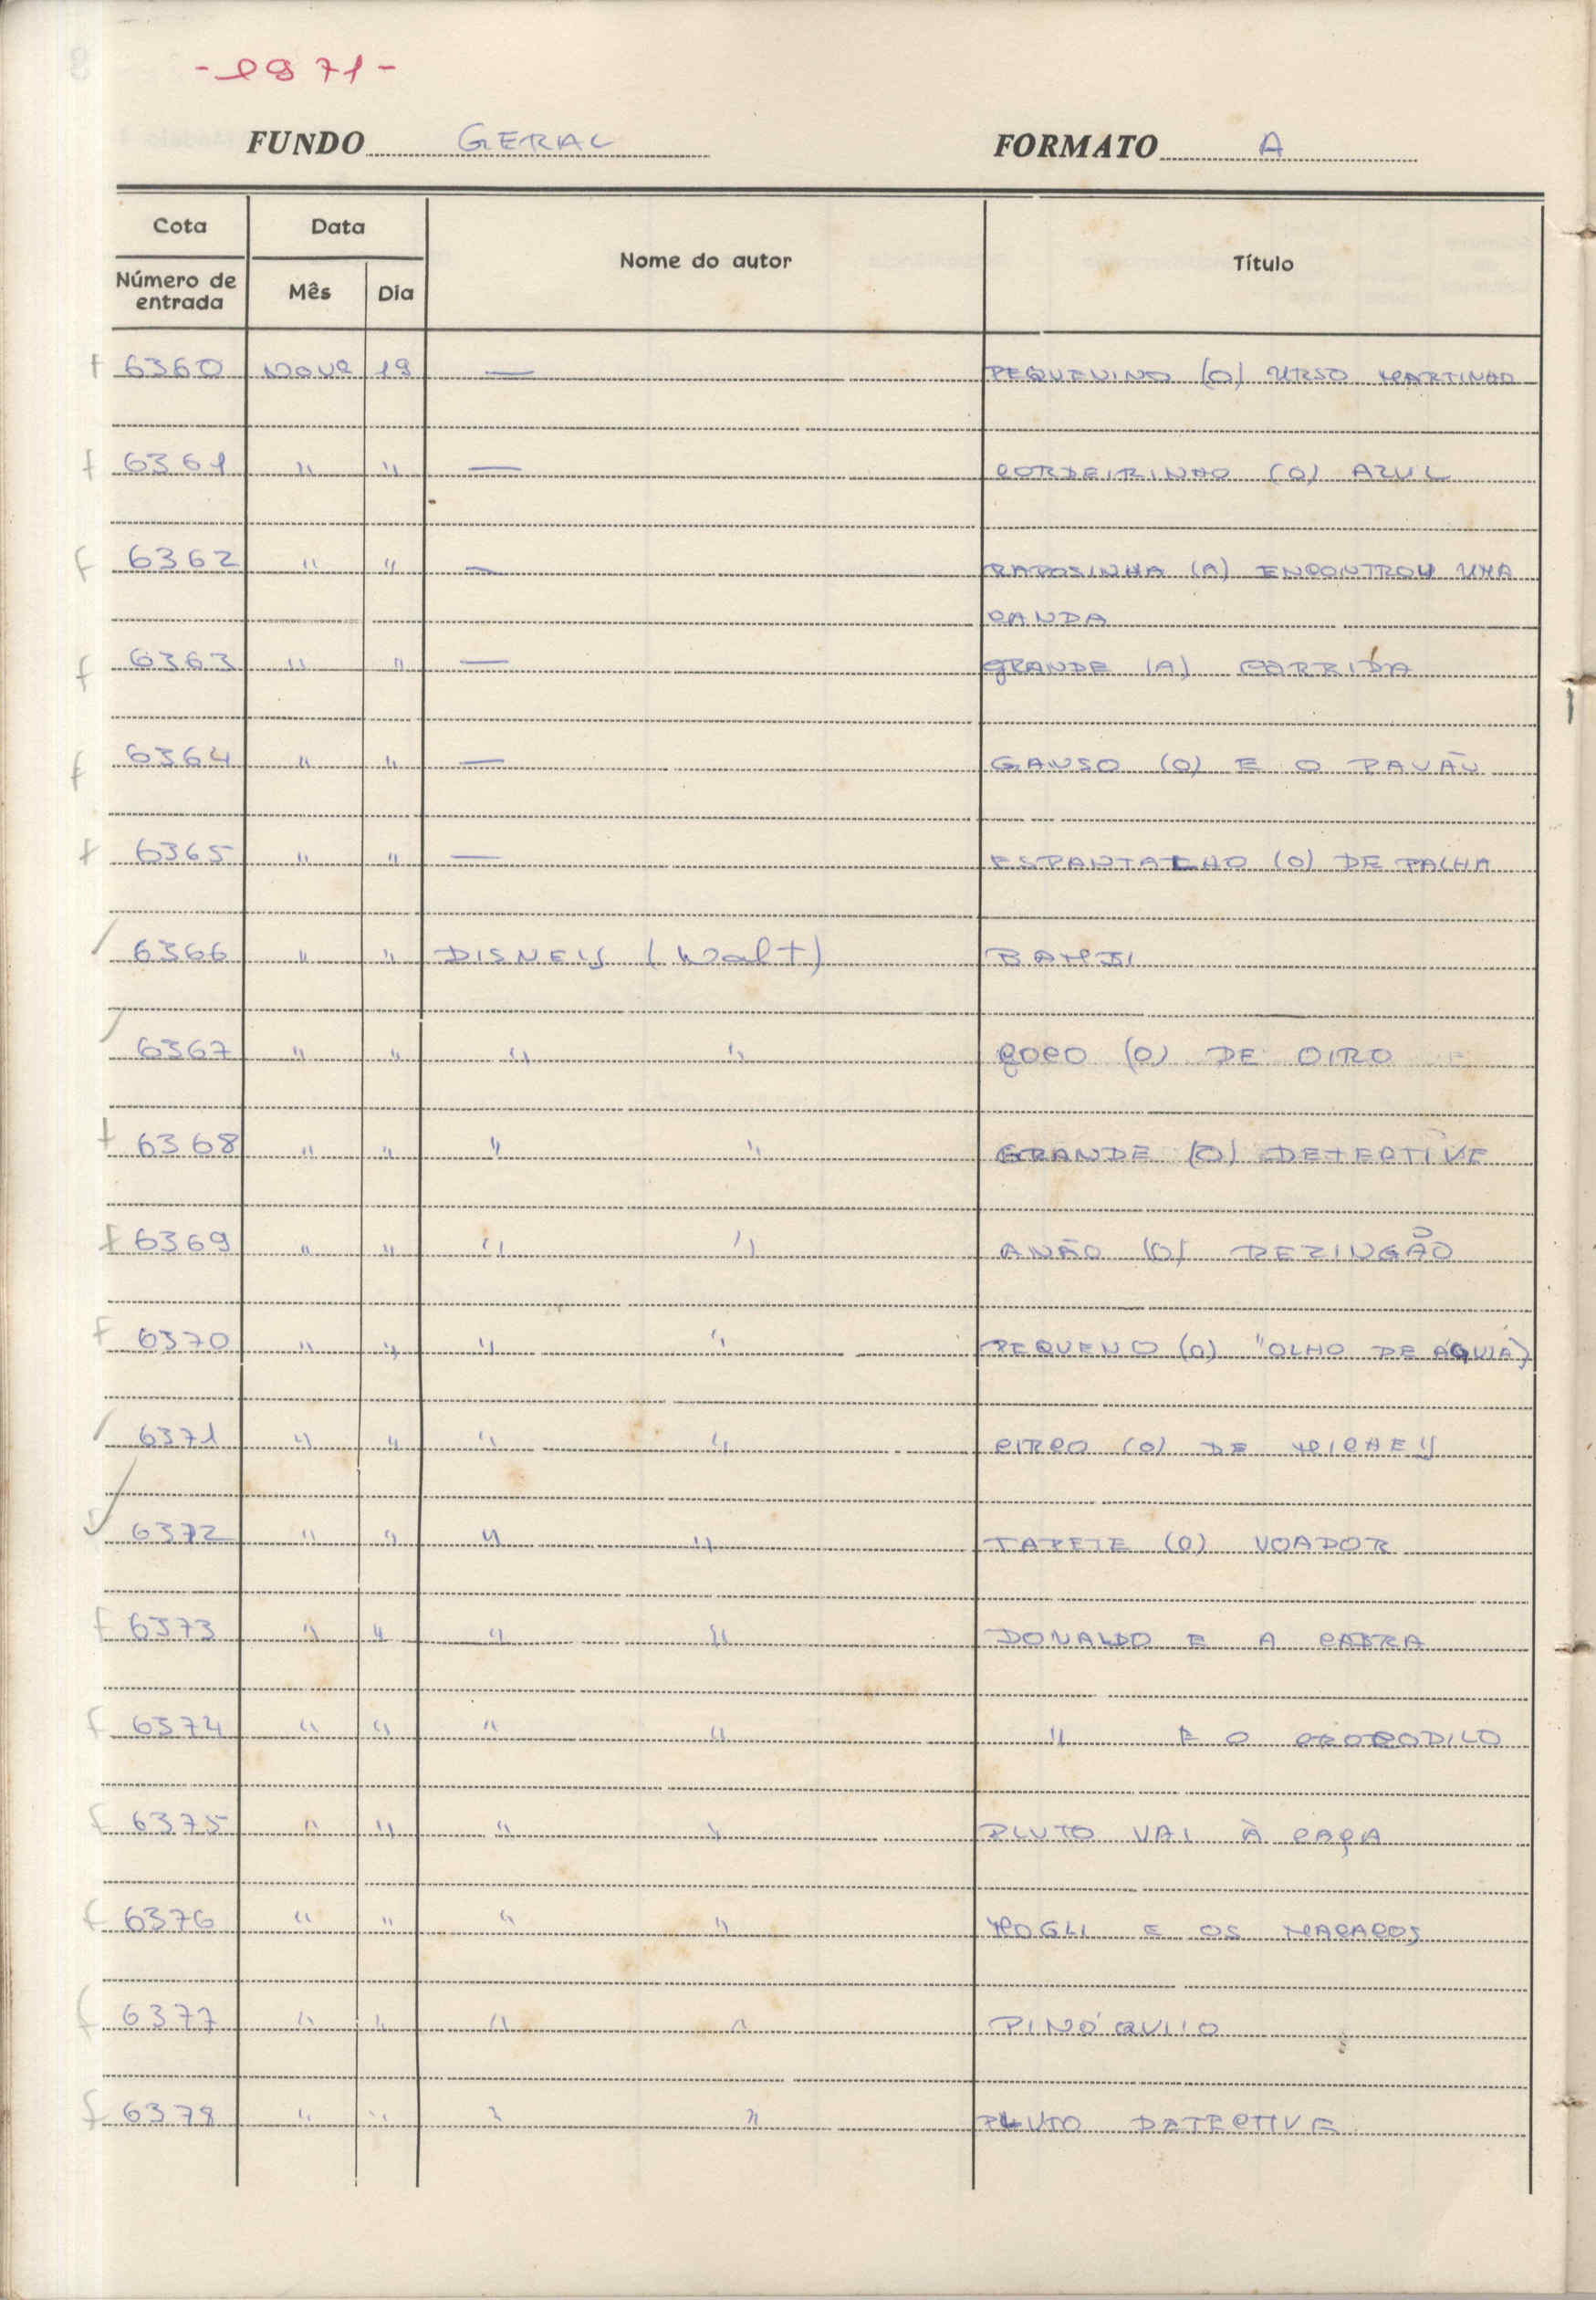 - 1971 -
FUNDO GERAL FORMATO A
Cota Data Nome do autor Título
Número de entrada Mês Dia
f 6360 NOVE 19 — PEQUENINO (O) URSO MARTINHO
f 6361 " " — CORDEIRINHO (O) AZUL
f 6362 " " — RAPOSINHA (A) ENCONTROU UMA
CANDA
f 6363 " " — GRANDE (A) CORRIDA
f 6364 " " — GANSO (O) E O PAVÃO
f 6365 " " — ESPANTALHO (O) DE PALHA
/ 6366 " " DISNEY (Walt) BAMBI
/ 6367 " " " " COCO (O) DE OIRO
f 6368 " " " " GRANDE (O) DETECTIVE
f 6369 " " " " ANÃO (O) REZINGÃO
f 6370 " " " " PEQUENO (O) "OLHO DE ÁGUIA"
/ 6371 " " " " CIRCO (O) DE MICHEY
/ 6372 " " " " TAPETE (O) VOADOR
f 6373 " " " " DONALDO E A CABRA
f 6374 " " " " " E O CROCODILO
f 6375 " " " " PLUTO VAI À CAÇA
f 6376 " " " " MOGLI E OS MACACOS
f 6377 " " " " PINÓQUIO
f 6378 " " " " PLUTO DETECTIVE